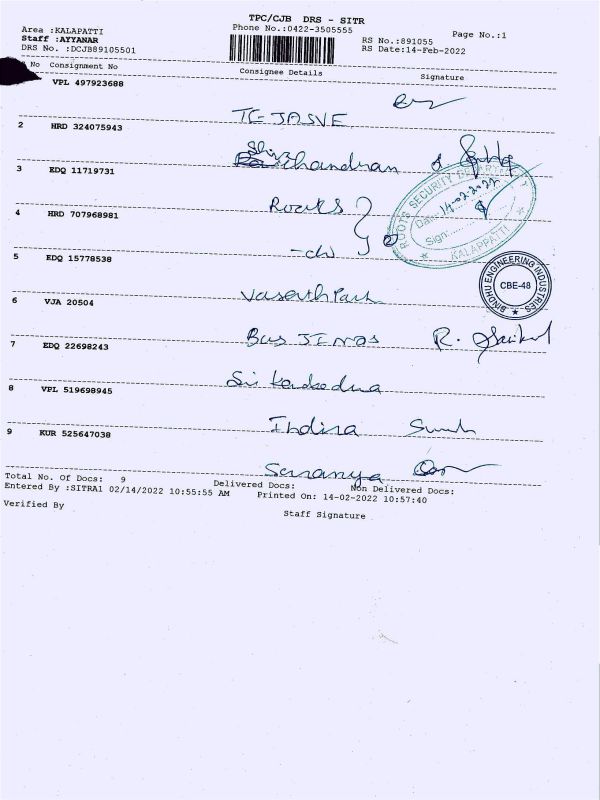 TPC/CJB DRS - SITR
Area :KALAPATTI
Phone No.:0422-3505555
Page No.:1
Staff :AYYANAR
RS No.:891055
DRS No. :DCJB89105501
RS Date:14-Feb-2022
No Consignment No
Consignee Details
Signature
VPL 497923688
TC-JASVE
2 HRD 324075943
Chandran
3 EDQ 11719731
Roots
4 HRD 707968981
-do
5 EDQ 15778538
6 VJA 20504
7 EDQ 22698243
Sri
8 VPL 519698945
Indira
9 KUR 525647038
Saranya
ROOTS SECURITY DEPARTMENT
Date: 14.02.2022
Sign:
KALAPPATTI
BINDHU ENGINEERING INDUSTRIES
CBE-48
Total No. Of Docs: 9
Delivered Docs:
Non Delivered Docs:
Entered By :SITRA1 02/14/2022 10:55:55 AM
Printed On: 14-02-2022 10:57:40
Verified By
Staff Signature